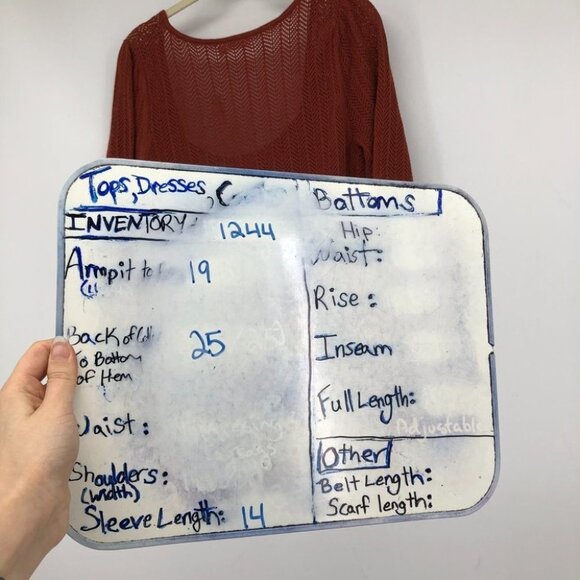 Tops, Dresses,
INVENTORY 1244
Armpit to 19
Back of
To Bottom 25
of Hem
Waist:
Shoulders:
(width)
Sleeve Length: 14
Bottoms
Hip:
Waist:
Rise:
Inseam
Full Length:
Adjustable
Other
Belt Length:
Scarf length: